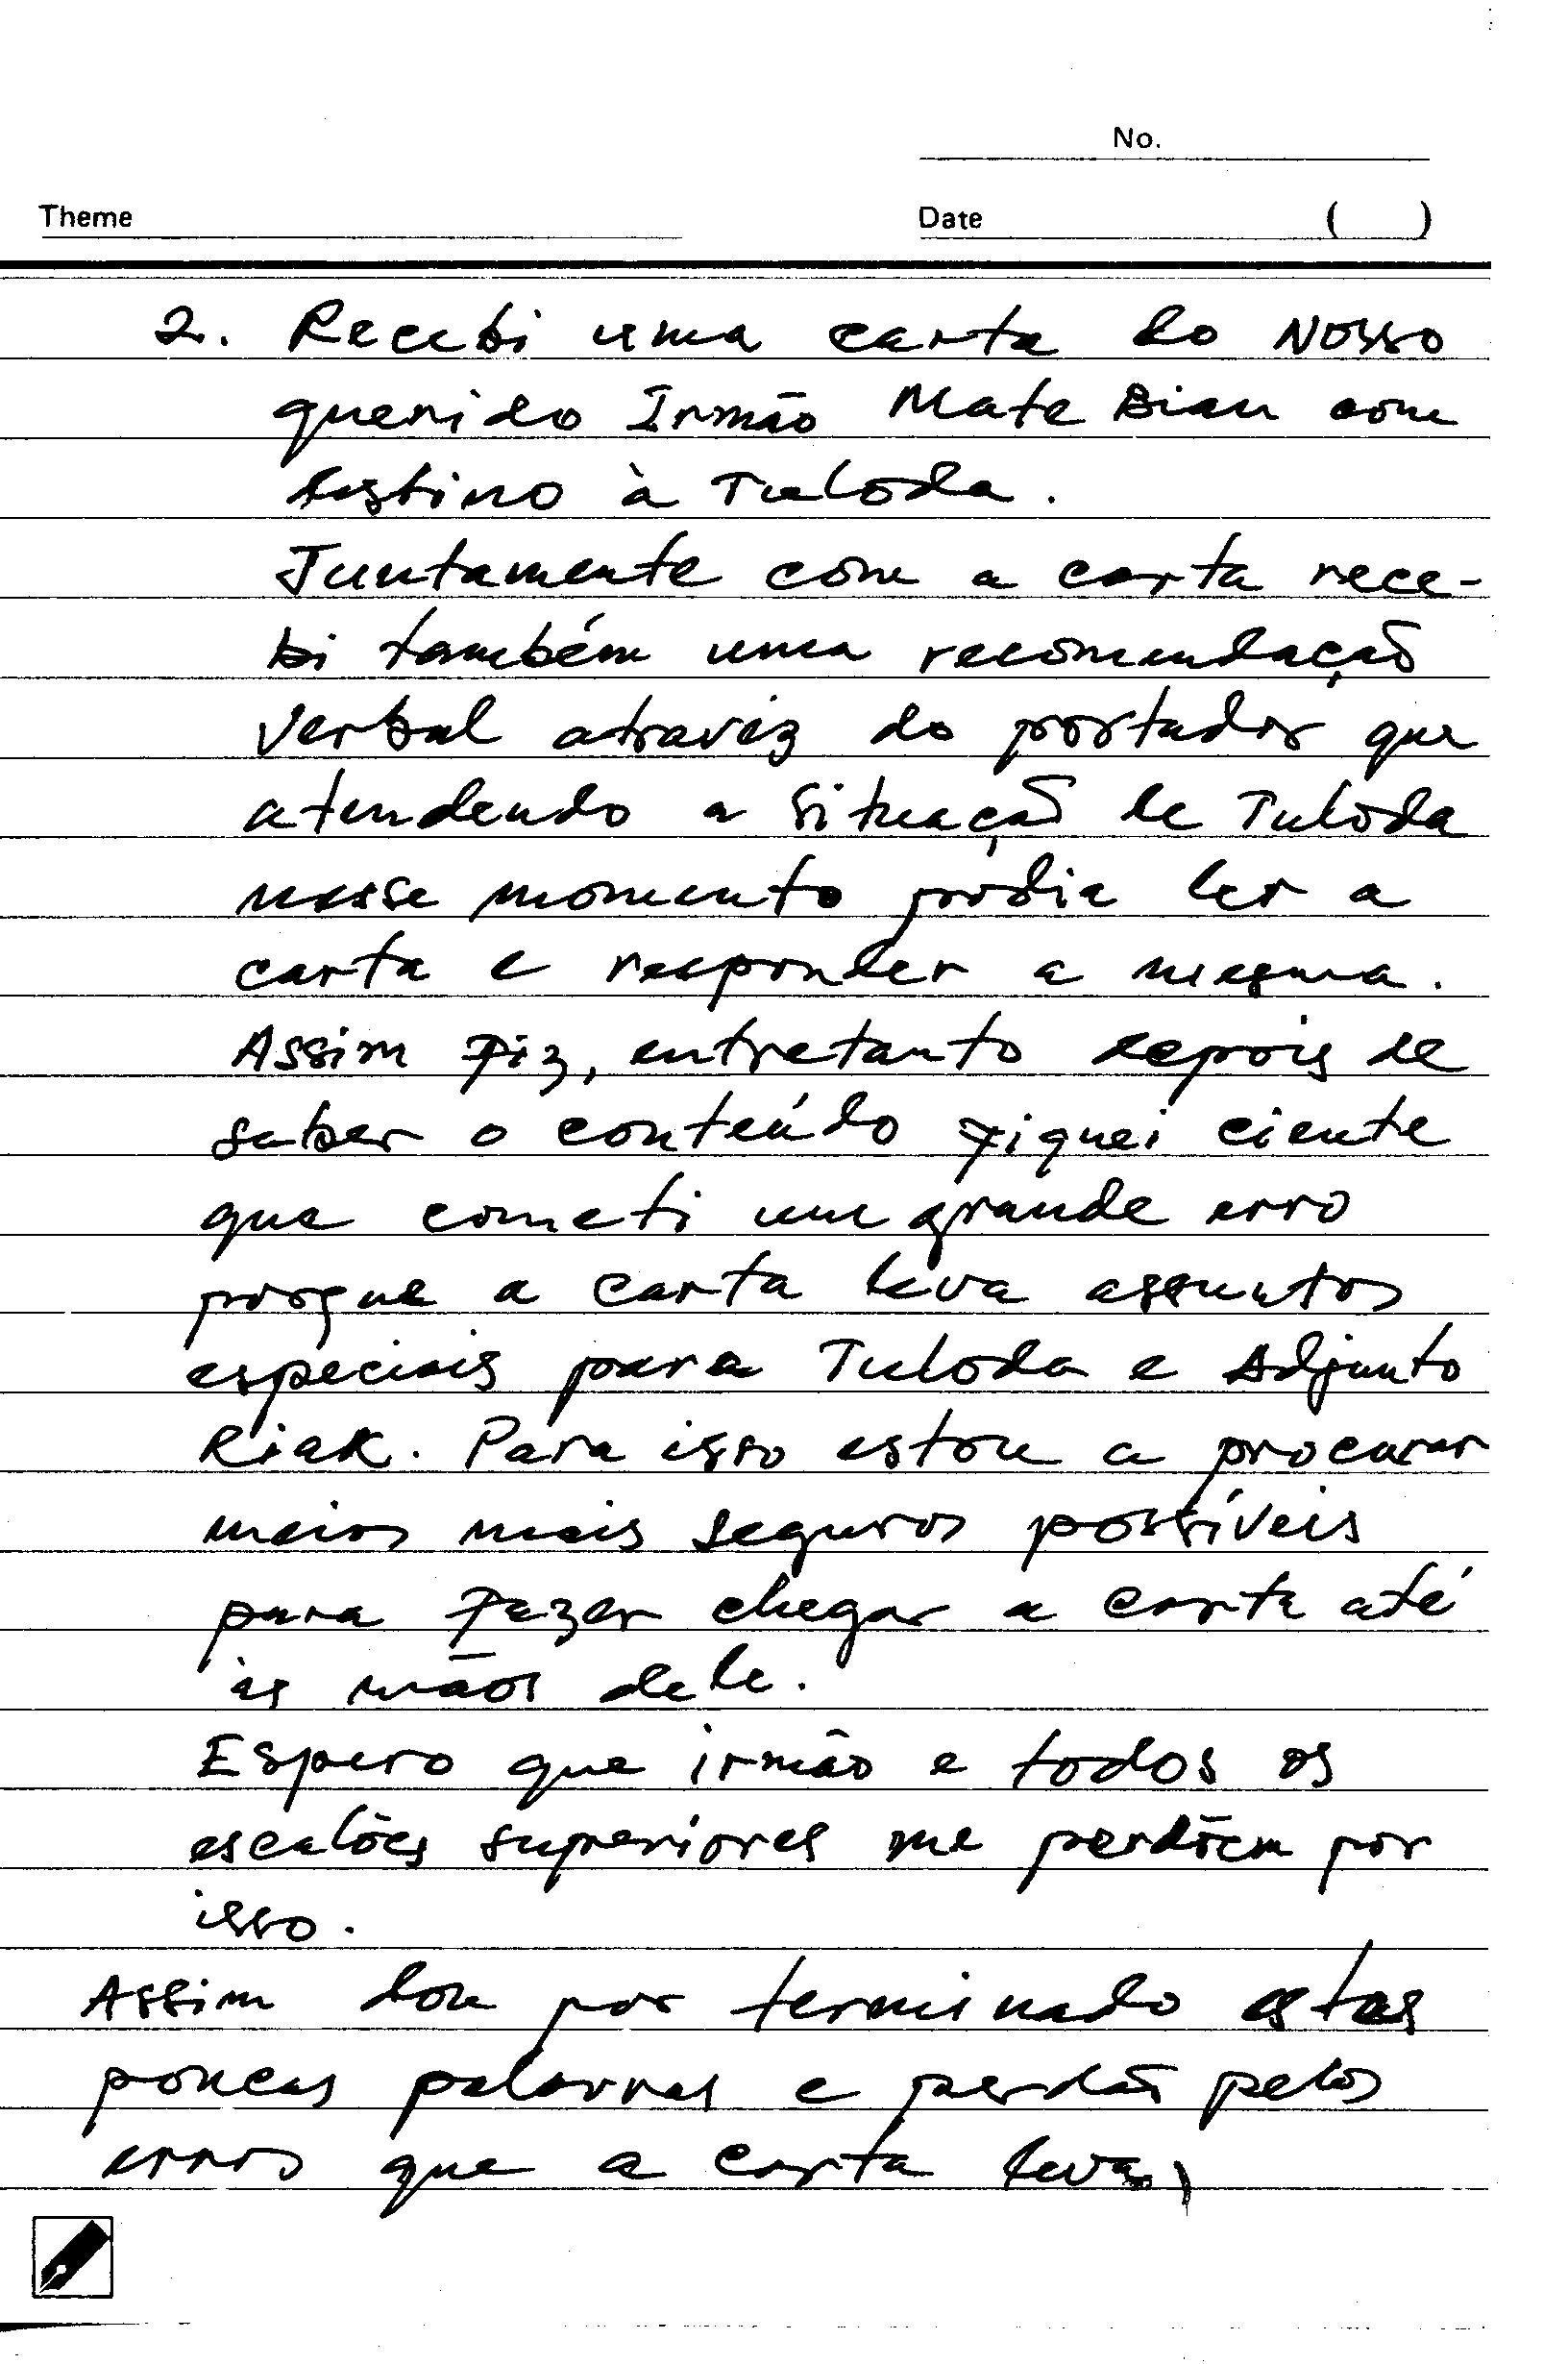 No.
Theme
Date ( )
2. Recebi uma carta do Nosso
querido Irmão Mate Bian com
destino à Tuloda.
Juntamente com a carta rece-
bi também uma recomendação
verbal atravéz do portador que
atendendo a situação de Tuloda
nesse momento podia ler a
carta e responder a mesma.
Assim fiz, entretanto depois de
saber o conteúdo fiquei ciente
que cometi um grande erro
porque a carta leva assuntos
especiais para Tuloda e Adjunto
Riak. Para isso estou a procurar
meios mais seguros possíveis
para fazer chegar a carta até
às mãos dele.
Espero que irmão e todos os
escalões superiores me perdõem por
isso.
Assim dou por terminado estas
poucas palavras e perdão pelos
erros que a carta leva,